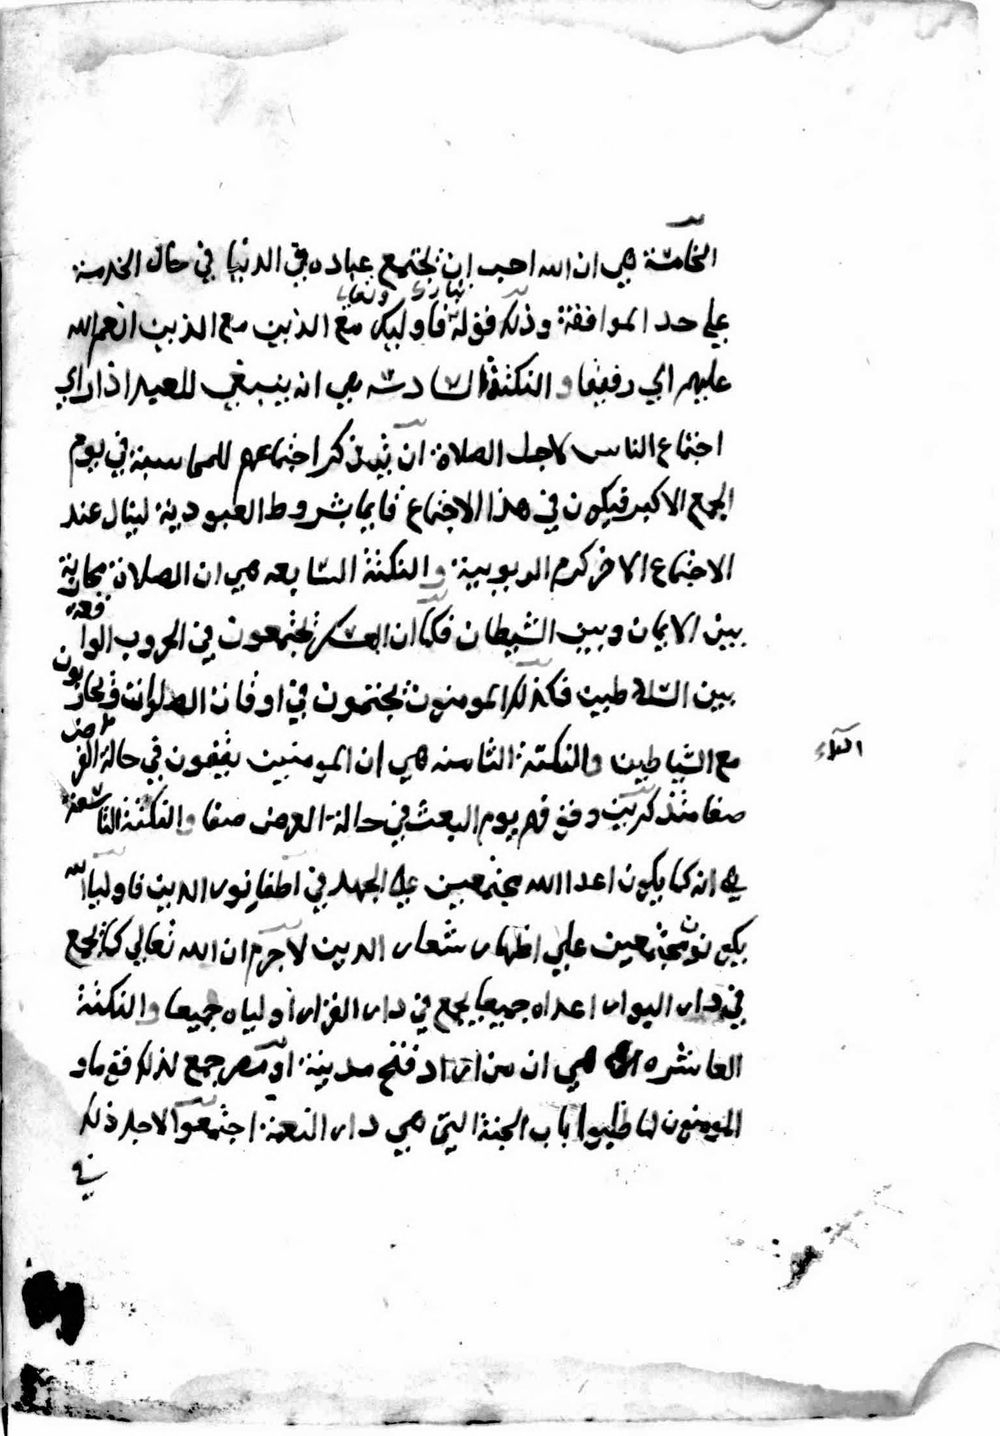 الخامسة هي ان الله احب ان تجتمع عباده في الدنيا في حال الخدمة
تبارك وتعالى
علي حد الموافقة وذلك قوله فاوليك مع الذين مع الذين انعم الله
عليهم الي رفيقا والنكتة السادسه هي انه ينبغي للعبد اذا راي
اجتماع الناس لاجل الصلاة ان يتذكر اجتماعهم للمحاسبة في يوم
الجمع الاكبر فيكون في هذا الاجتماع قايما بشروط العبودية لينال عند
الاجتماع الاخر كرم الربوبية والنكتة السابعه هي ان الصلاة محاربة
بين الايمان وبين الشيطان فكما ان العسكر تجتمعون في الحروب الواقعة
بين السلاطين فكذلك المومنون تجتمعون في اوقات الصلوات ويحاربون
مع الشياطين والنكتة الثامنه هي ان المومنين يقفون في حالة الفرض
صفا متذكرين وقوفهم يوم البعث في حالة العرض صفا والنكتة التاسعة
هي انه كما يكون اعدا الله مجتمعين علي الجهد في اطفا نور الدين فاوليا الله
يكونون مجتمعين علي اظهار شعار الدين لا جرم ان الله تعالي كما يجمع
في دار البوار اعداه جميعا يجمع في دار القرار اولياه جميعا والنكتة
العاشره هي ان من اراد فتح مدينة او مصر جمع لذلك قوما و
المومنون لما طلبوا باب الجنة التي هي دار النعمة اجتمعوا لاجل ذلك
في